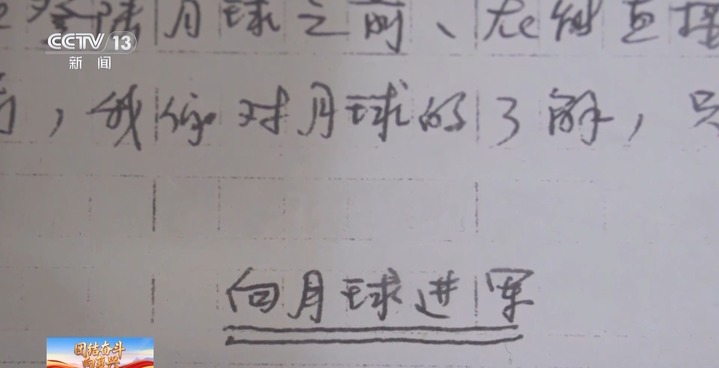 CCTV 13
新闻
陆月球之前、在能直接
，我们对月球的了解，只
向月球进军
团结奋斗